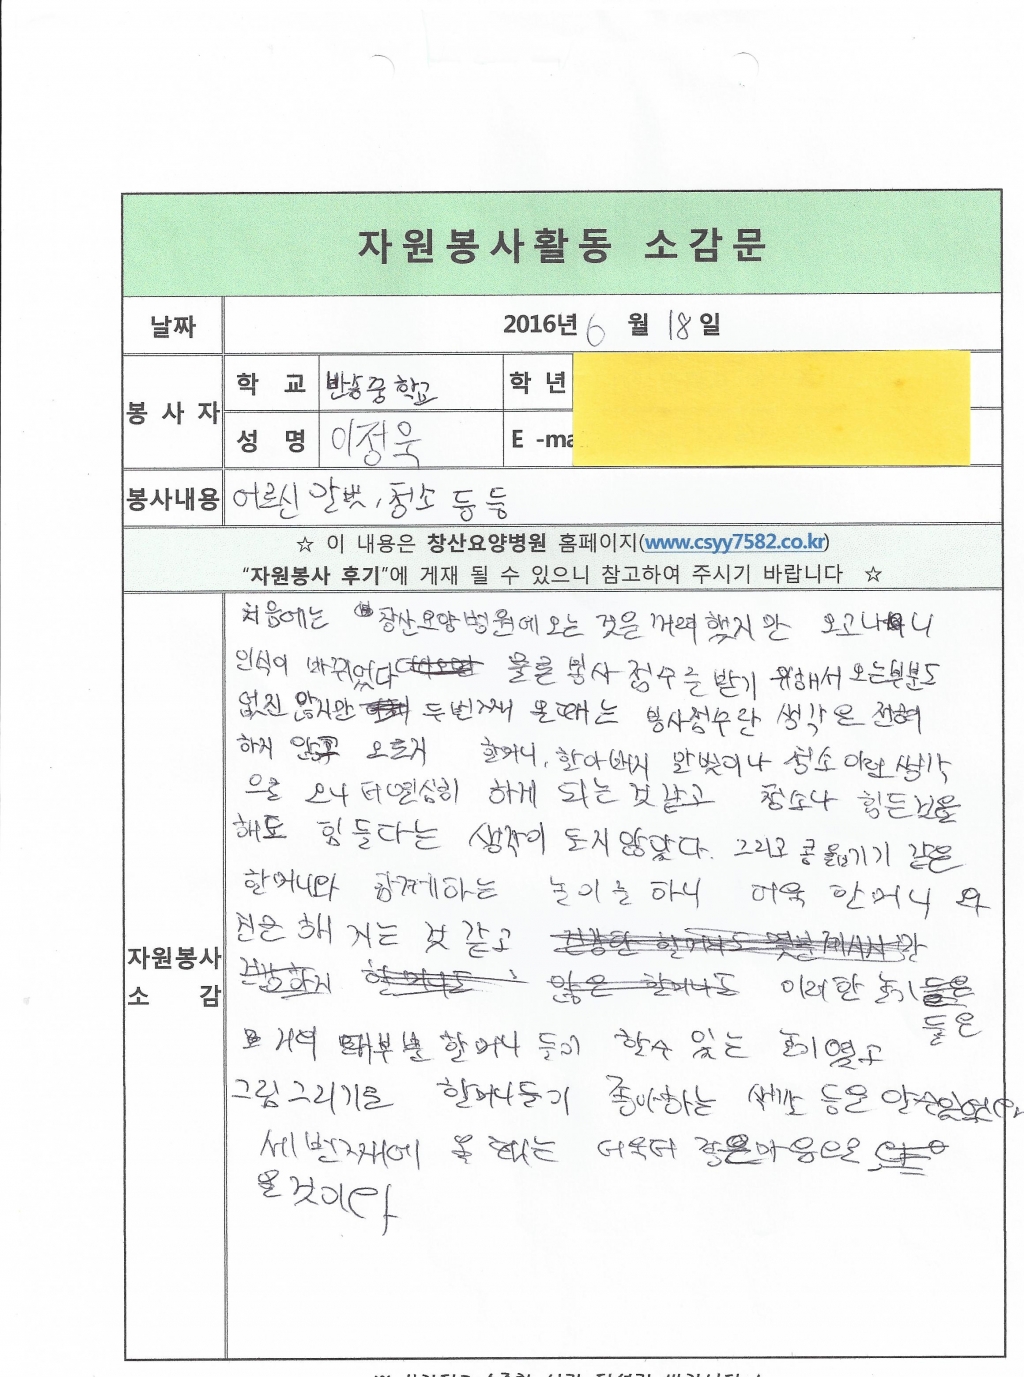 자원봉사활동 소감문
날짜 2016년 6 월 18일
봉 사 자
학 교 반송중학교 학 년
성 명 이정욱 E -ma
봉사내용 어르신 말벗, 청소 등등
☆ 이 내용은 창산요양병원 홈페이지(www.csyy7582.co.kr)
“자원봉사 후기”에 게재 될 수 있으니 참고하여 주시기 바랍니다 ☆
자원봉사
소 감
처음에는 창산요양병원에 오는 것은 꺼려했지만 오고나니
인식이 바뀌었다 물론 봉사 점수를 받기 위해서 오는부분도
없진 않지만 두번째 올때는 봉사점수란 생각은 전혀
하지 않고 오로지 할머니, 할아버지 말벗이나 청소 이런 생각
으로 오니 더 열심히 하게 되는 것 같고 청소나 힘든일을
해도 힘들다는 생각이 들지 않았다. 그리고 콩 옮기기 같은
할머니와 함께하는 놀이를 하니 더욱 할머니 와
친근해 지는 것 같고
이러한 놀이
들은
거의 대부분 할머니 들이 할수 있는 놀이였고
그림그리기를 할머니들이 좋아하는 색깔 등은 알수있었다
세번째에 올 때는 더욱더 젊은마음으로
올것이다